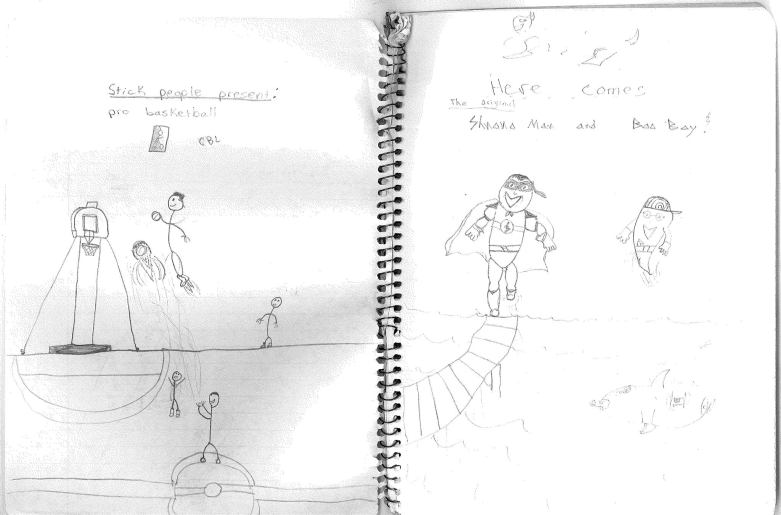 Stick people present:
pro basketball
Here comes
The original
Man and Boy!